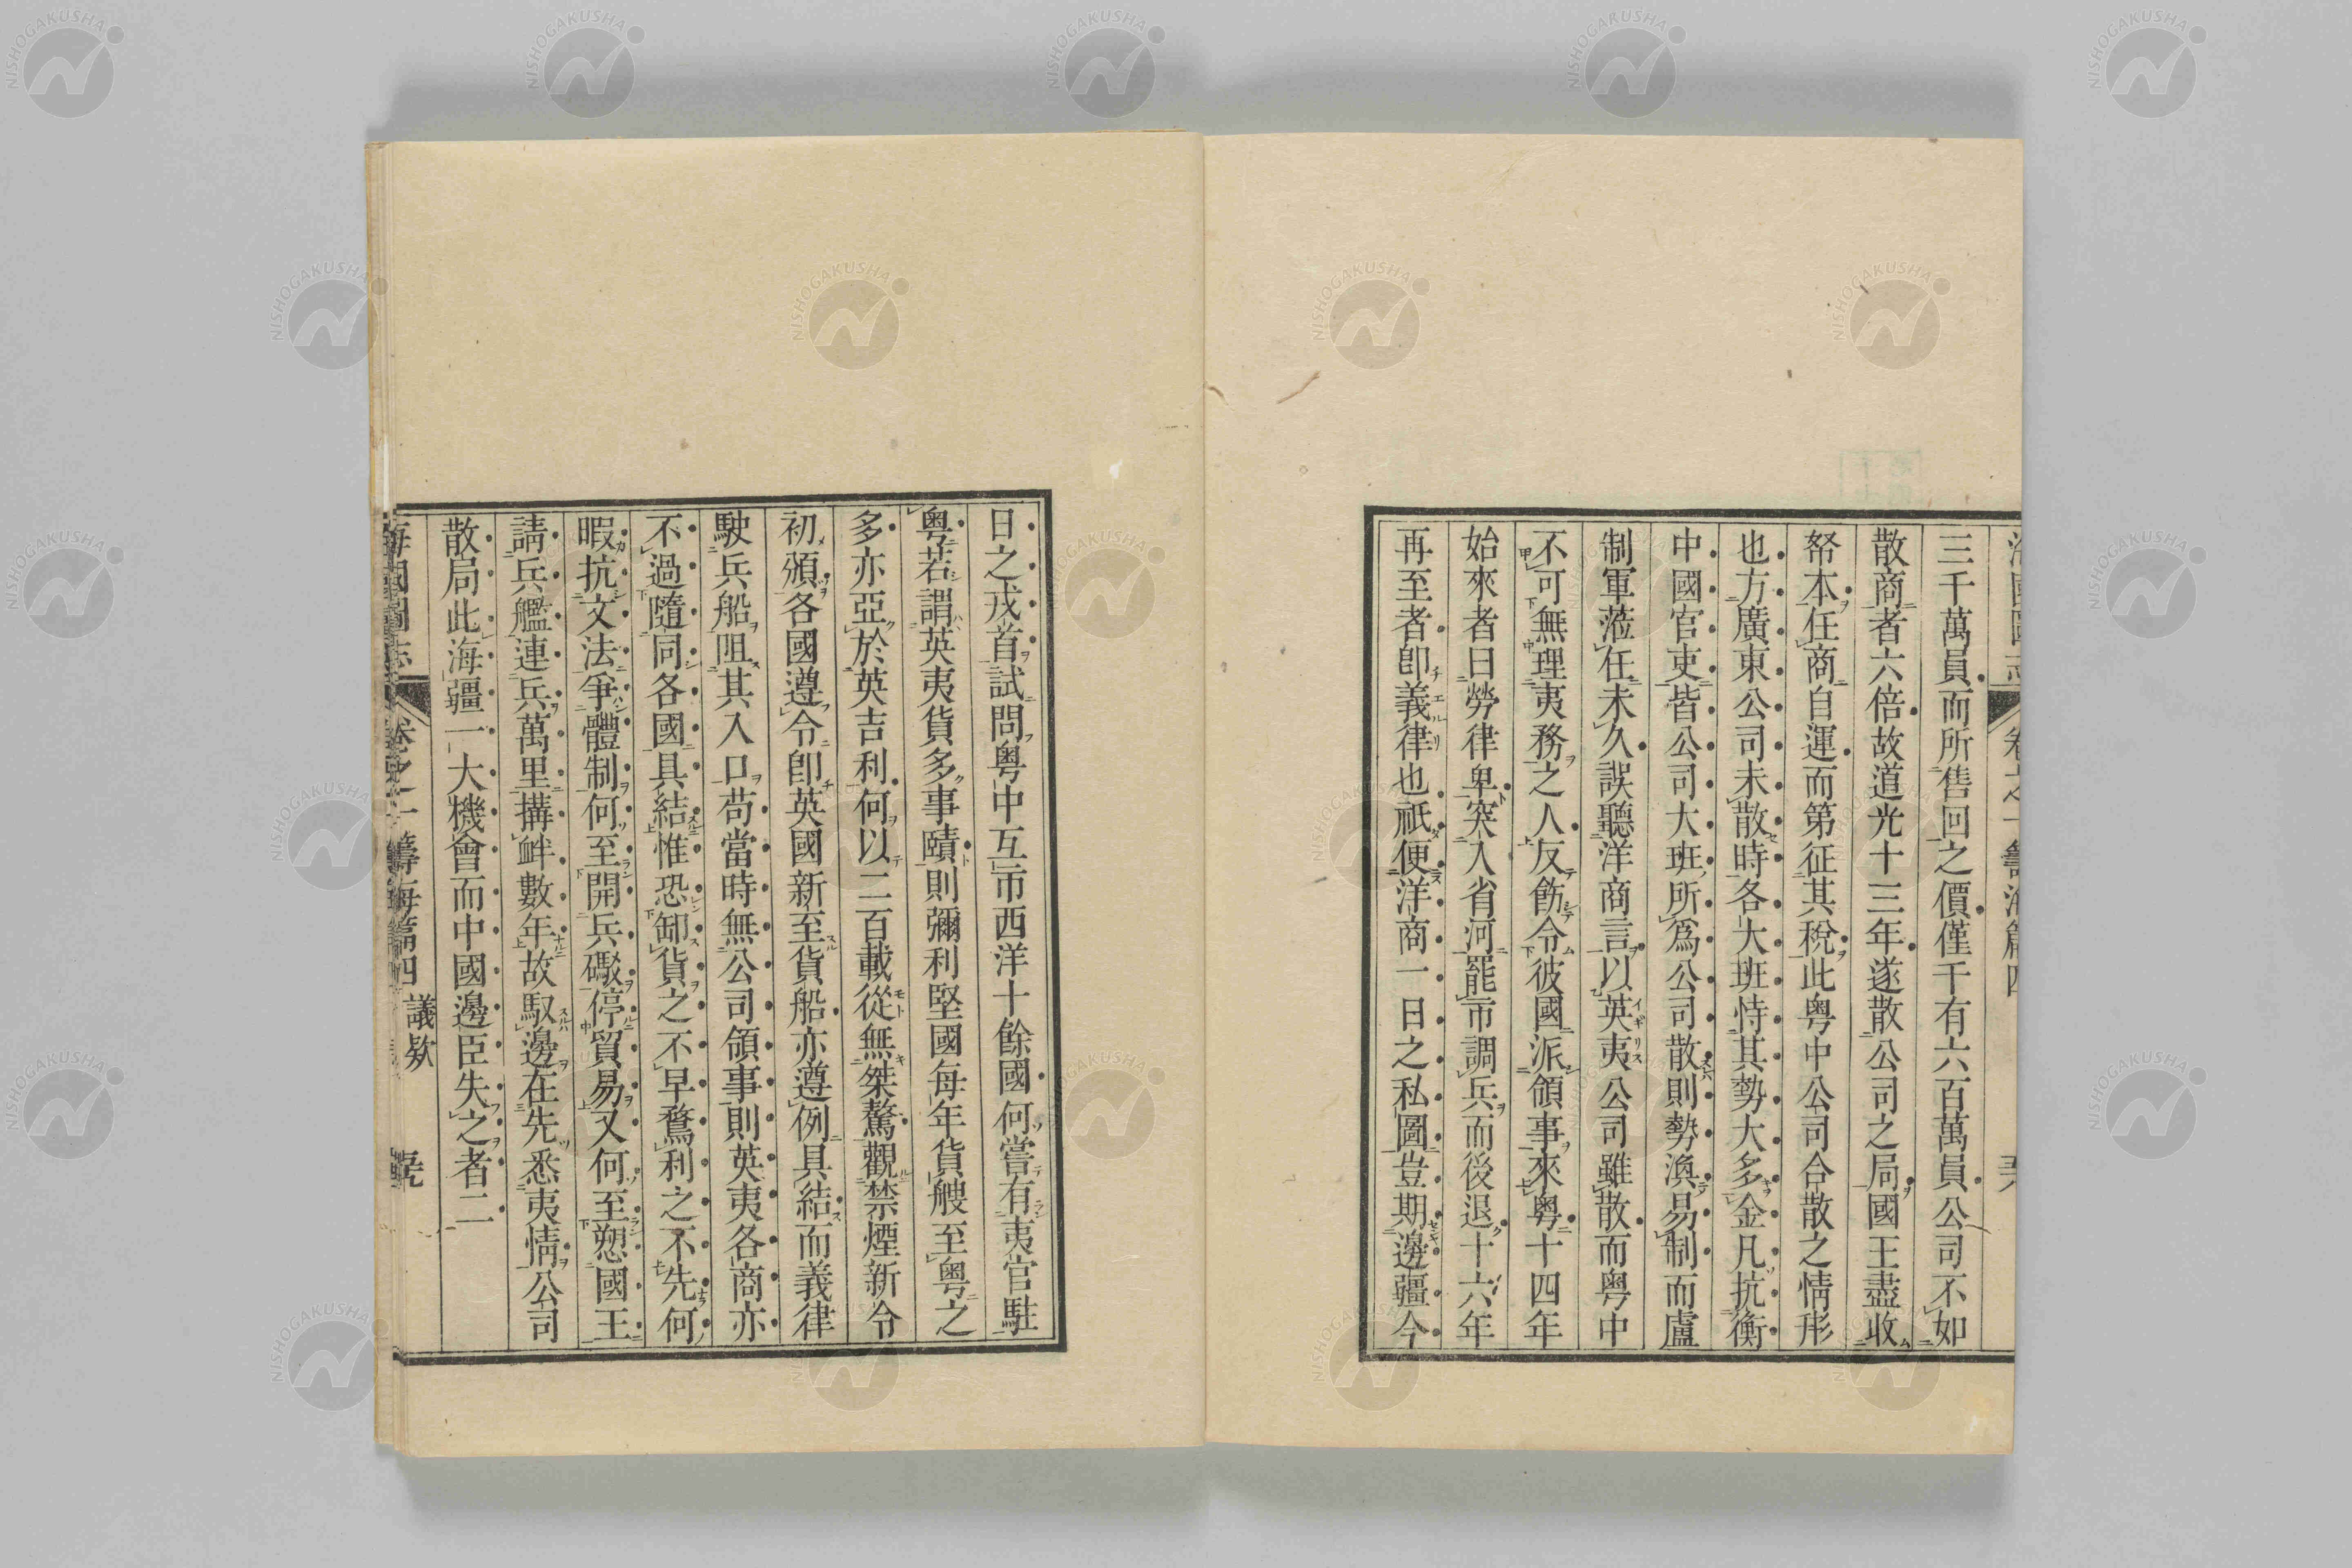 海國圖志 卷之一 籌海篇四
三千萬員而所售回之價僅千有六百萬員公司不如
散商者六倍故道光十三年遂散公司之局國王盡收
帑本任商自運而第征其稅此粵中公司合散之情形
也方廣東公司未散時各大班恃其勢大多金凡抗衡
中國官吏皆公司大班所爲公司散則勢渙易制而盧
制軍蒞任未久誤聽洋商言以英夷公司雖散而粵中
不可無理夷務之人反飭令彼國派領事來粵十四年
始來者曰勞律卑突入省河罷市調兵而後退十六年
再至者卽義律也祇便洋商一日之私圖豈期邊疆今
日之戎首試問粵中互市西洋十餘國何嘗有夷官駐
粵若謂英夷貨多事賾則彌利堅國每年貨艘至粵之
多亦亞於英吉利何以二百載從無桀驁觀禁煙新令
初頒各國遵令卽英國新至貨船亦遵例具結而義律
駛兵船阻其入口苟當時無公司領事則英夷各商亦
不過隨同各國具結惟恐卸貨之不早鶩利之不先何
暇抗文法爭體制何至開兵礟停貿易又何至愬國王
請兵艦連兵萬里搆衅數年故馭邊在先悉夷情公司
散局此海疆一大機會而中國邊臣失之者二
海國圖志 卷之一 籌海篇四 議欵
NISHOGAKUSHA